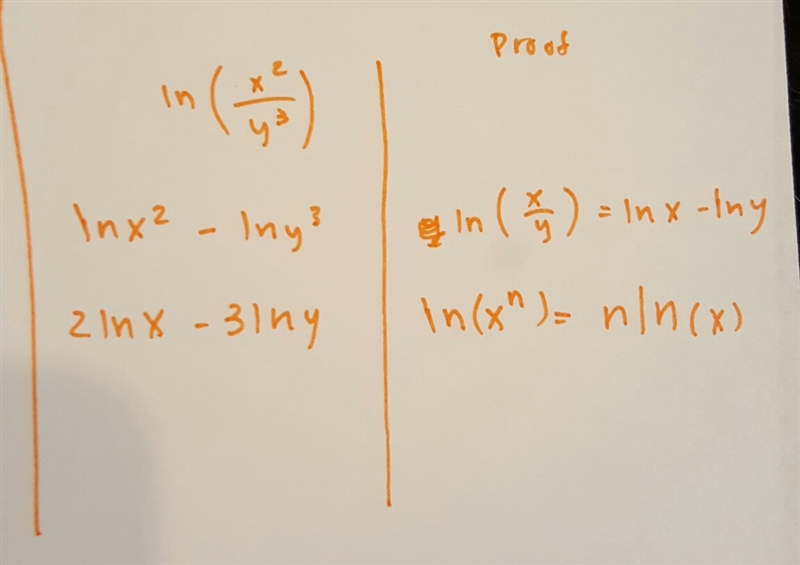 Proof
ln(x²/y³)
lnx² - lny³
ln(x/y) = lnx - lny
2lnx - 3lny
ln(xⁿ) = nln(x)